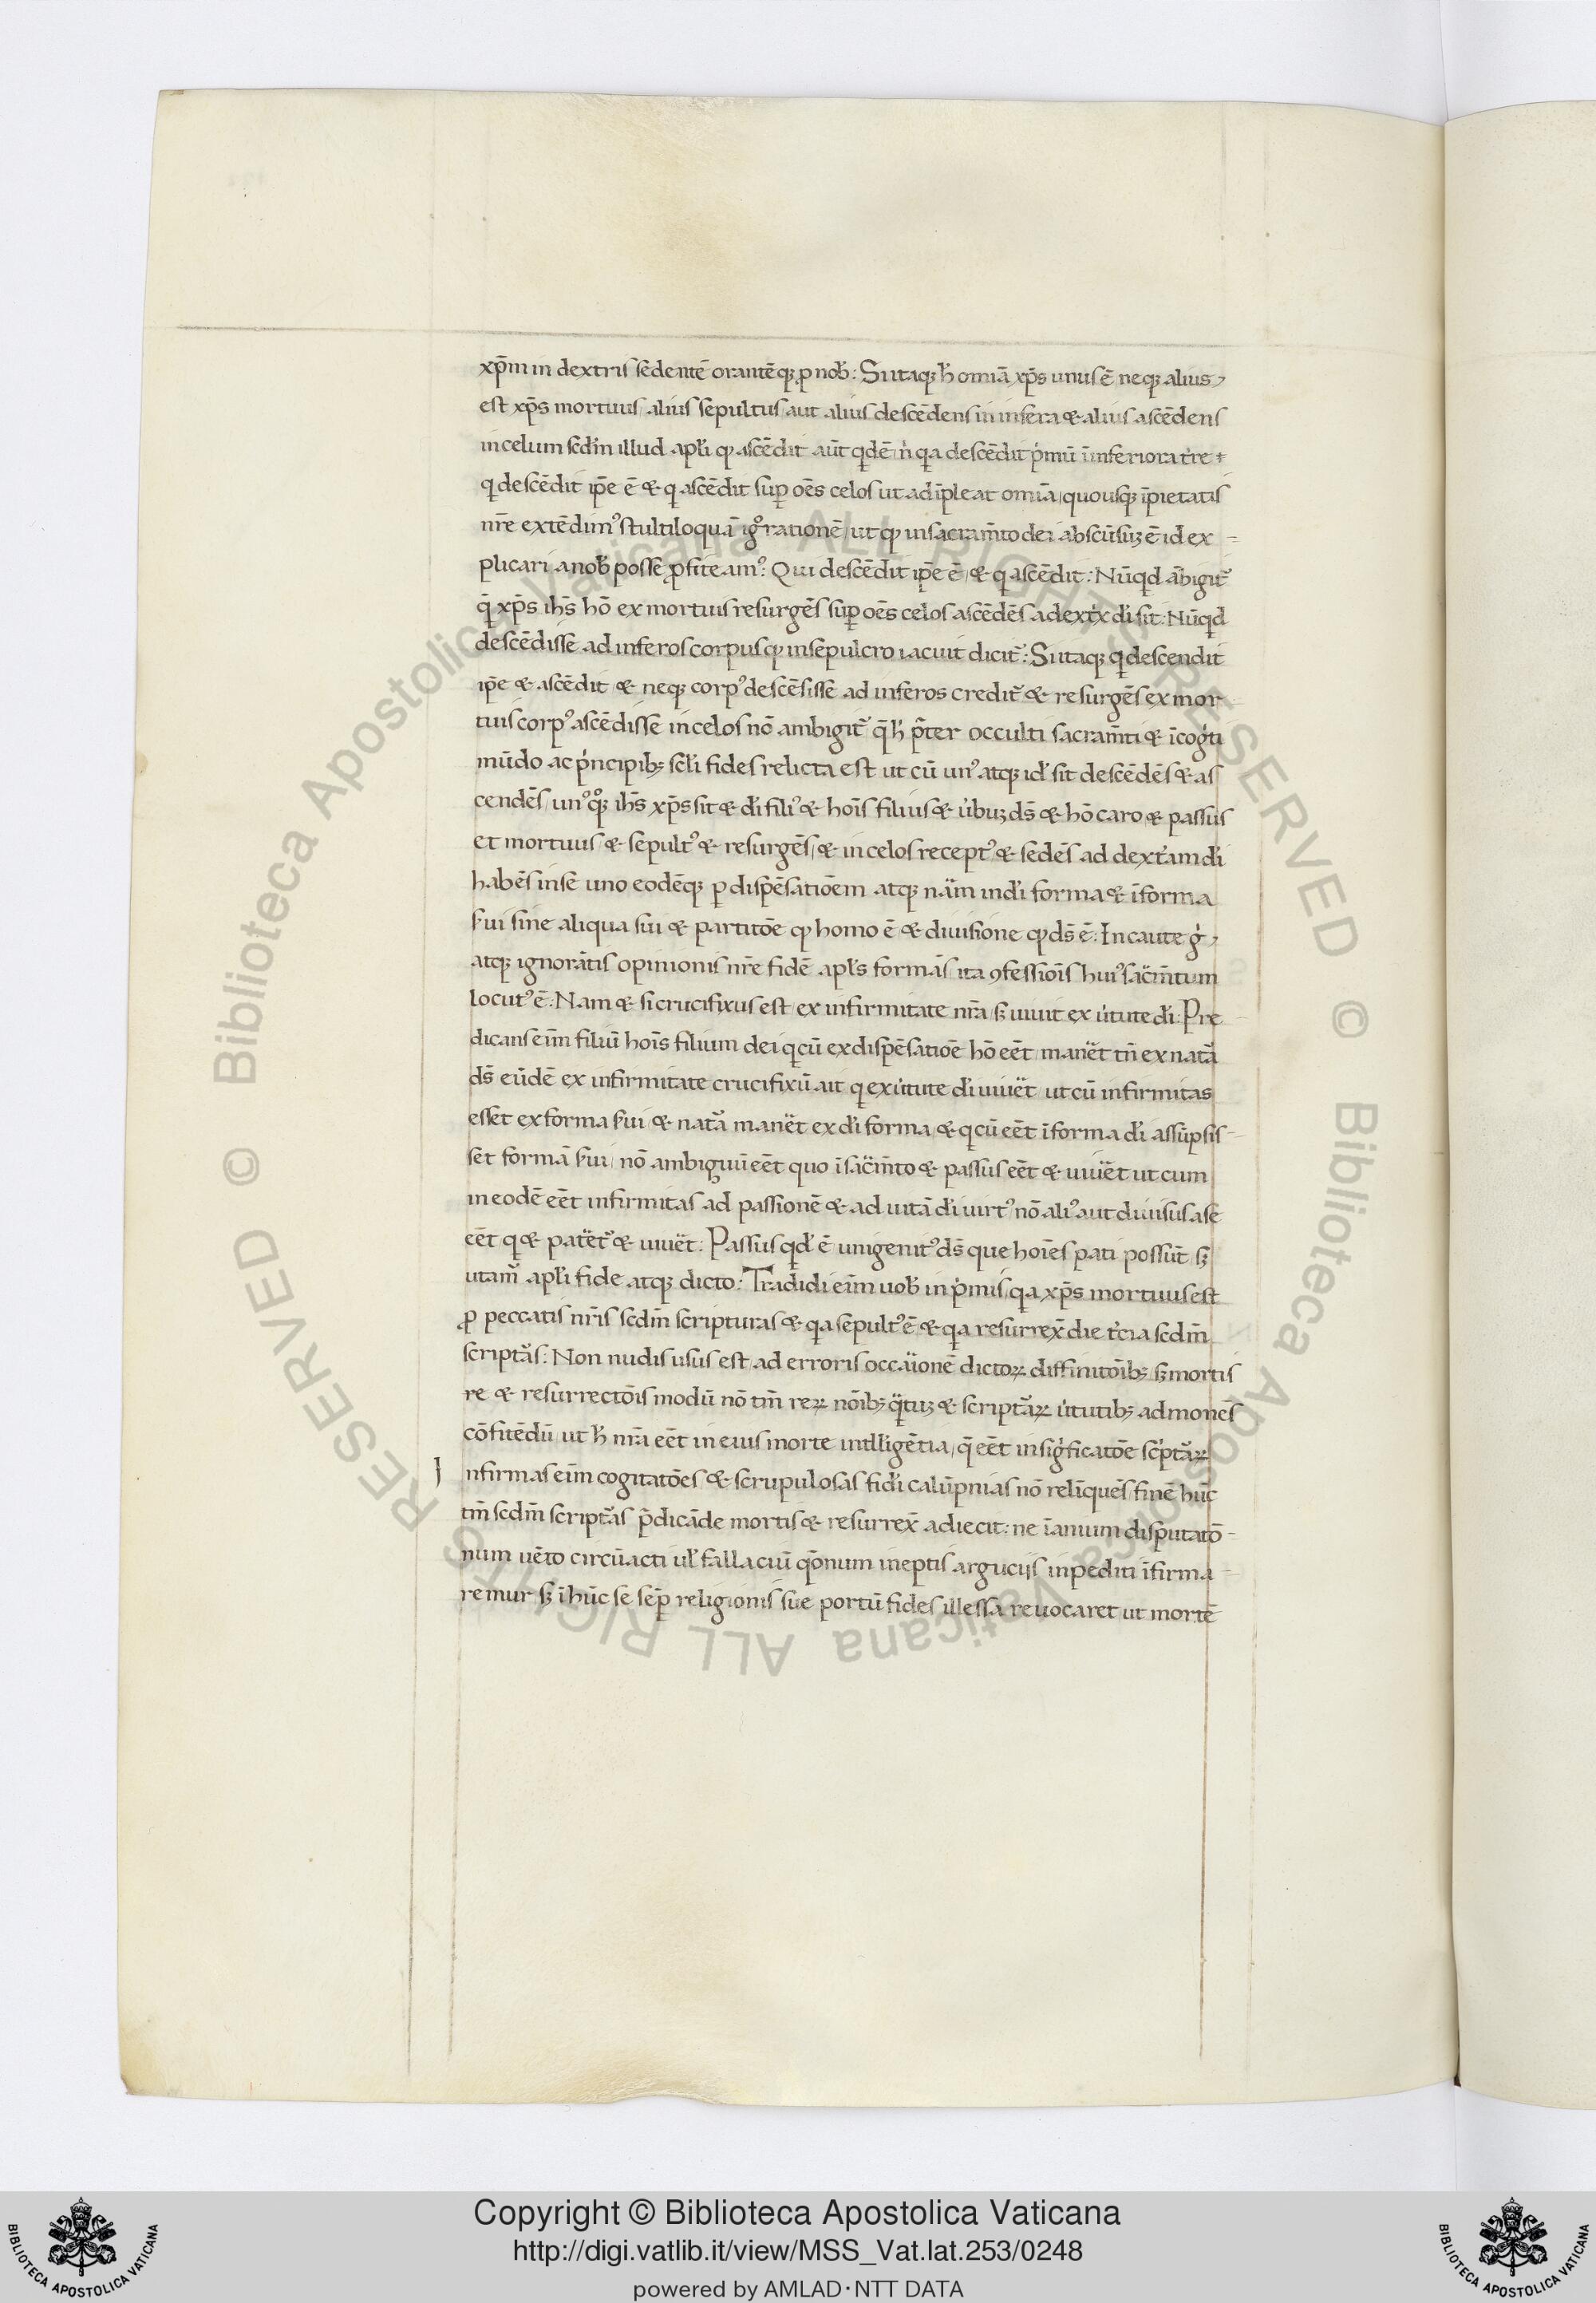 xp̄m in dextris sedentē orantēq; ꝓ nob̄: Si itaq; h̄ omīa xp̄s unus ē neq; alius
est xp̄s mortuus alius sepultus aut alius descēdens in infera & alius ascēdens
in celum scdm illud apl̄i qꝫ ascēdit aūt qdē n̄ qa descēdit pͥmū īnferiora tr̄e &
q descēdit ip̄e ē & q ascēdit suꝑ oēs celos ut adīpleat omīa quousq; īpietatis
nr̄e extēdimꝰ stultiloquā igͦrationē ut qꝫ in sacram̄to dei abscūsuꝫ ē id ex
plicari a nob̄ posse ꝓfiteamꝰ: Qui descēdit ip̄e ē & q ascēdit: Nūqd ābigit̄
q̄ xp̄s ih̄s hō ex mortuis resurgēs suꝑ oēs celos ascēdēs a dextͥx dī sit: Nūqd
descēdisse ad inferos corpus qꝫ in sepulcro iacuit dicit̄: Si itaq; q descendit
ip̄e & ascēdit & neq; corpꝰ descēsisse ad inferos credit̄ & resurgēs ex mor
tuis corpꝰ ascēdisse in celos nō ambigit̄ q̄ h̄ p̄ter occulti sacram̄ti & īcogͥti
mūdo ac pͥncipibꝫ scl̄i fides relicta est ut cū unꝰ atq; id̄ sit descēdēs & as
cendēs unꝰ qͦꝫ ih̄s xp̄s sit & dī filiꝰ & hoīs filius & ūbuꝫ ds̄ & hō caro & passus
et mortuus & sepultꝰ & resurgēs & in celos receptꝰ & sedēs ad dextͣam dī
habēs in se uno eodēq; ꝑ dispēsatiōem atq; nām in dī forma & ī forma
s̄ui sine aliqua sui & partitōe qꝫ homo ē & diuisione qꝫ ds̄ ē: Incaute gͥ
atq; ignorātis opinionis nr̄e fidē apl̄s formās ita ꝯfessiōīs huiꝰ sac̄m̄tum
locutꝰ ē: Nam & si crucifixus est ex infirmitate nr̄a sꝫ uiuit ex ūtute dī: Pre
dicans eīm filiū hoīs filium dei q cū ex dispēsatiōe hō eēt manēt tn̄ ex natā
ds̄ eūdē ex infirmitate crucifixū ait q ex ūtute dī uiuēt ut cū infirmitas
esset ex forma s̄ui & natā manēt ex dī forma & q cū eēt ī forma dī assūpsis
sēt formā s̄ui nō ambiguū eēt quo ī sac̄m̄to & passus eēt & uiuēt ut cum
in eodē eēt infirmitas ad passionē & ad uitā dī uirtꝰ nō aliꝰ aut diuisus a se
eēt q & patētꝰ & uiuēt: Passus qd̄ ē unigenitꝰ ds̄ que hoīes pati possūt sꝫ
utam̄ apl̄i fide atq; dicto: Tradidi eīm uob̄ in pͥmis qa xp̄s mortuus est
ꝓ peccatis nr̄is scdm̄ scripturas & qa sepultꝰ ē & qa resurrex̄ die tͥcia scdm̄
scriptās: Non nudis usus est ad erroris occāionē dictoꝝ diffinitōibꝫ sꝫ mortis
re & resurrectōis modū nō tm̄ reꝝ nōibꝫ qͣtuꝫ & scriptāꝝ ūtutibꝫ admonēs
cōfitēdū ut h̄ nr̄a eēt in eius morte intlligētia q̄ eēt in sigͥficatōe scͥptāꝝ
Infirmas eīm cogitatōes & scrupulosas fidī calūpnias nō relīquēs finē hūc
tm̄ scdm̄ scriptās p̄dicāde mortis & resurrex̄ adiecit: ne īanium disputatō
num uēto circūacti ul̄ fallaciū qōnum ineptis argucijs inpediti īfirma
remur sꝫ ī hūc se sēꝑ religionis sue portū fides illessa reuocaret ut mortē
Copyright © Biblioteca Apostolica Vaticana
http://digi.vatlib.it/view/MSS_Vat.lat.253/0248
powered by AMLAD·NTT DATA